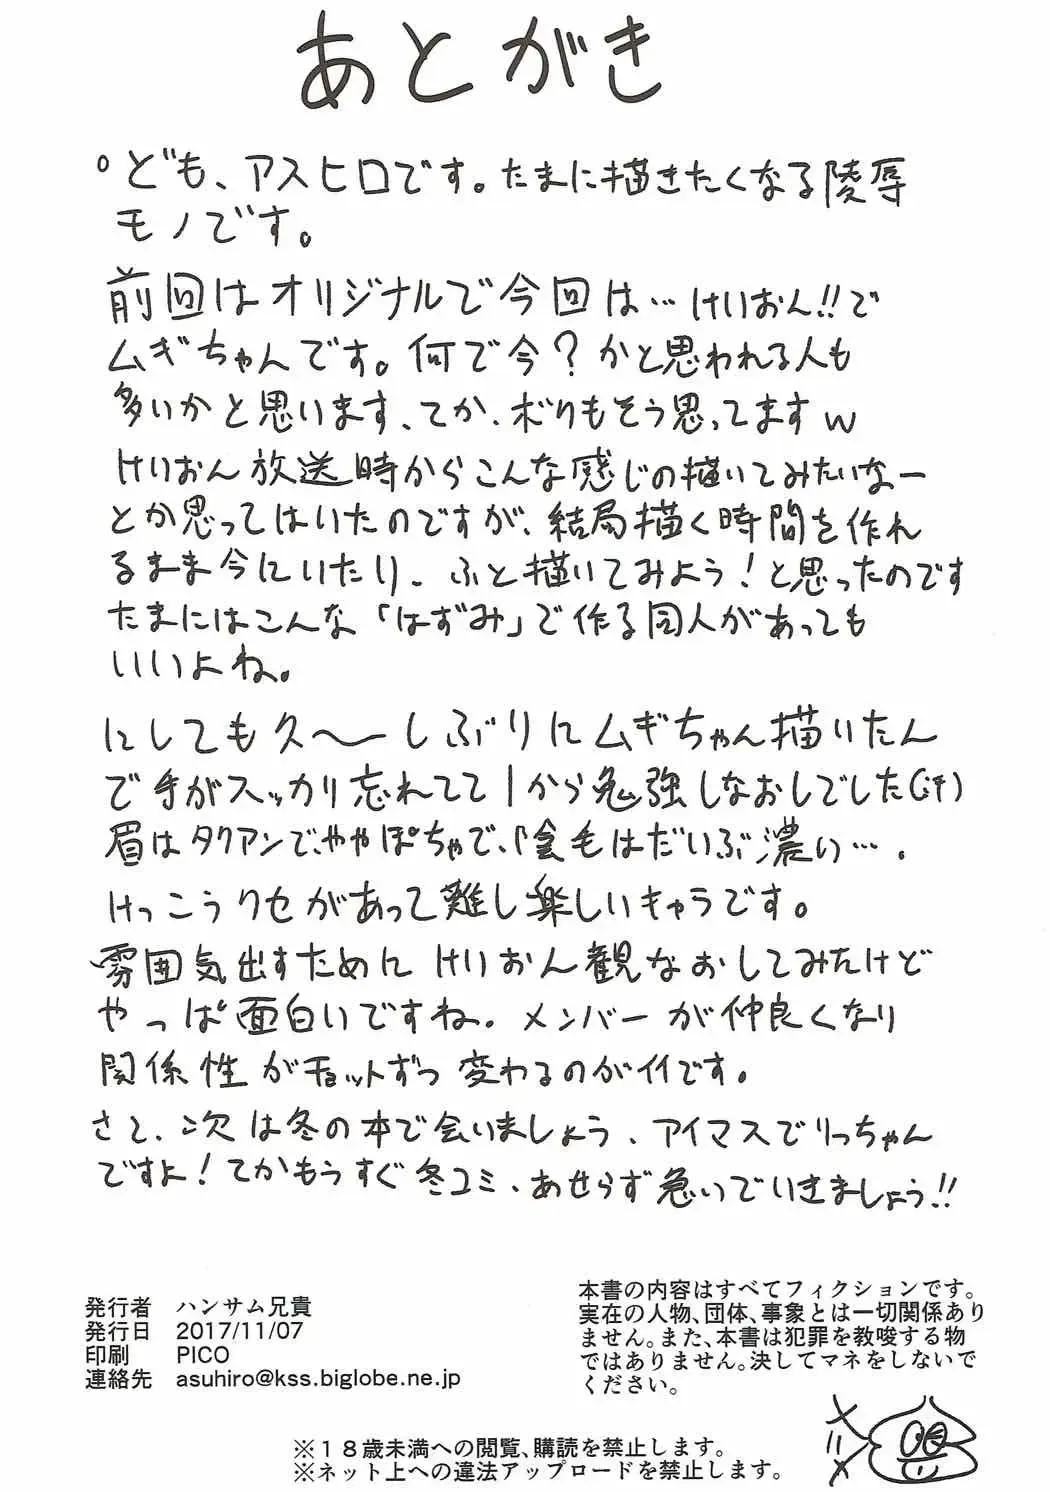 あとがき
。ども、アスヒロです。たまに描きたくなる陵辱
モノです。
前回はオリジナルで今回は…けいおん!!で
ムギちゃんです。何で今？かと思われる人も
多いかと思います、てか、ボクもそう思ってますw
けいおん放送時からこんな感じの描いてみたいなー
とか思ってはいたのですが、結局描く時間を作れ
るまま今にいたり、ふと描いてみよう！と思ったのです
たまにはこんな「はずみ」で作る同人があっても
いいよね。
にしても久〜しぶりにムギちゃん描いたん
で手がスッカリ忘れてて1から勉強しなおしでした(汗)
眉はタクアンで、ややぽちゃで、
けっこうクセがあって難し楽しいキャラです。
雰囲気出すためにけいおん観なおしてみたけど
やっぱ面白いですね。メンバーが仲良くなり
関係性がチョットずつ変わるのがイイです。
さて、次は冬の本で会いましょう、アイマスでりっちゃん
ですよ！てかもうすぐ冬コミ、あせらず急いでいきましょう!!
発行者 ハンサム兄貴
発行日 2017/11/07
印刷 PICO
連絡先 asuhiro@kss.biglobe.ne.jp
本書の内容はすべてフィクションです。
実在の人物、団体、事象とは一切関係あり
ません。また、本書は犯罪を教唆する物
ではありません。決してマネをしないで
ください。
※１８歳未満への閲覧、購読を禁止します。
※ネット上への違法アップロードを禁止します。